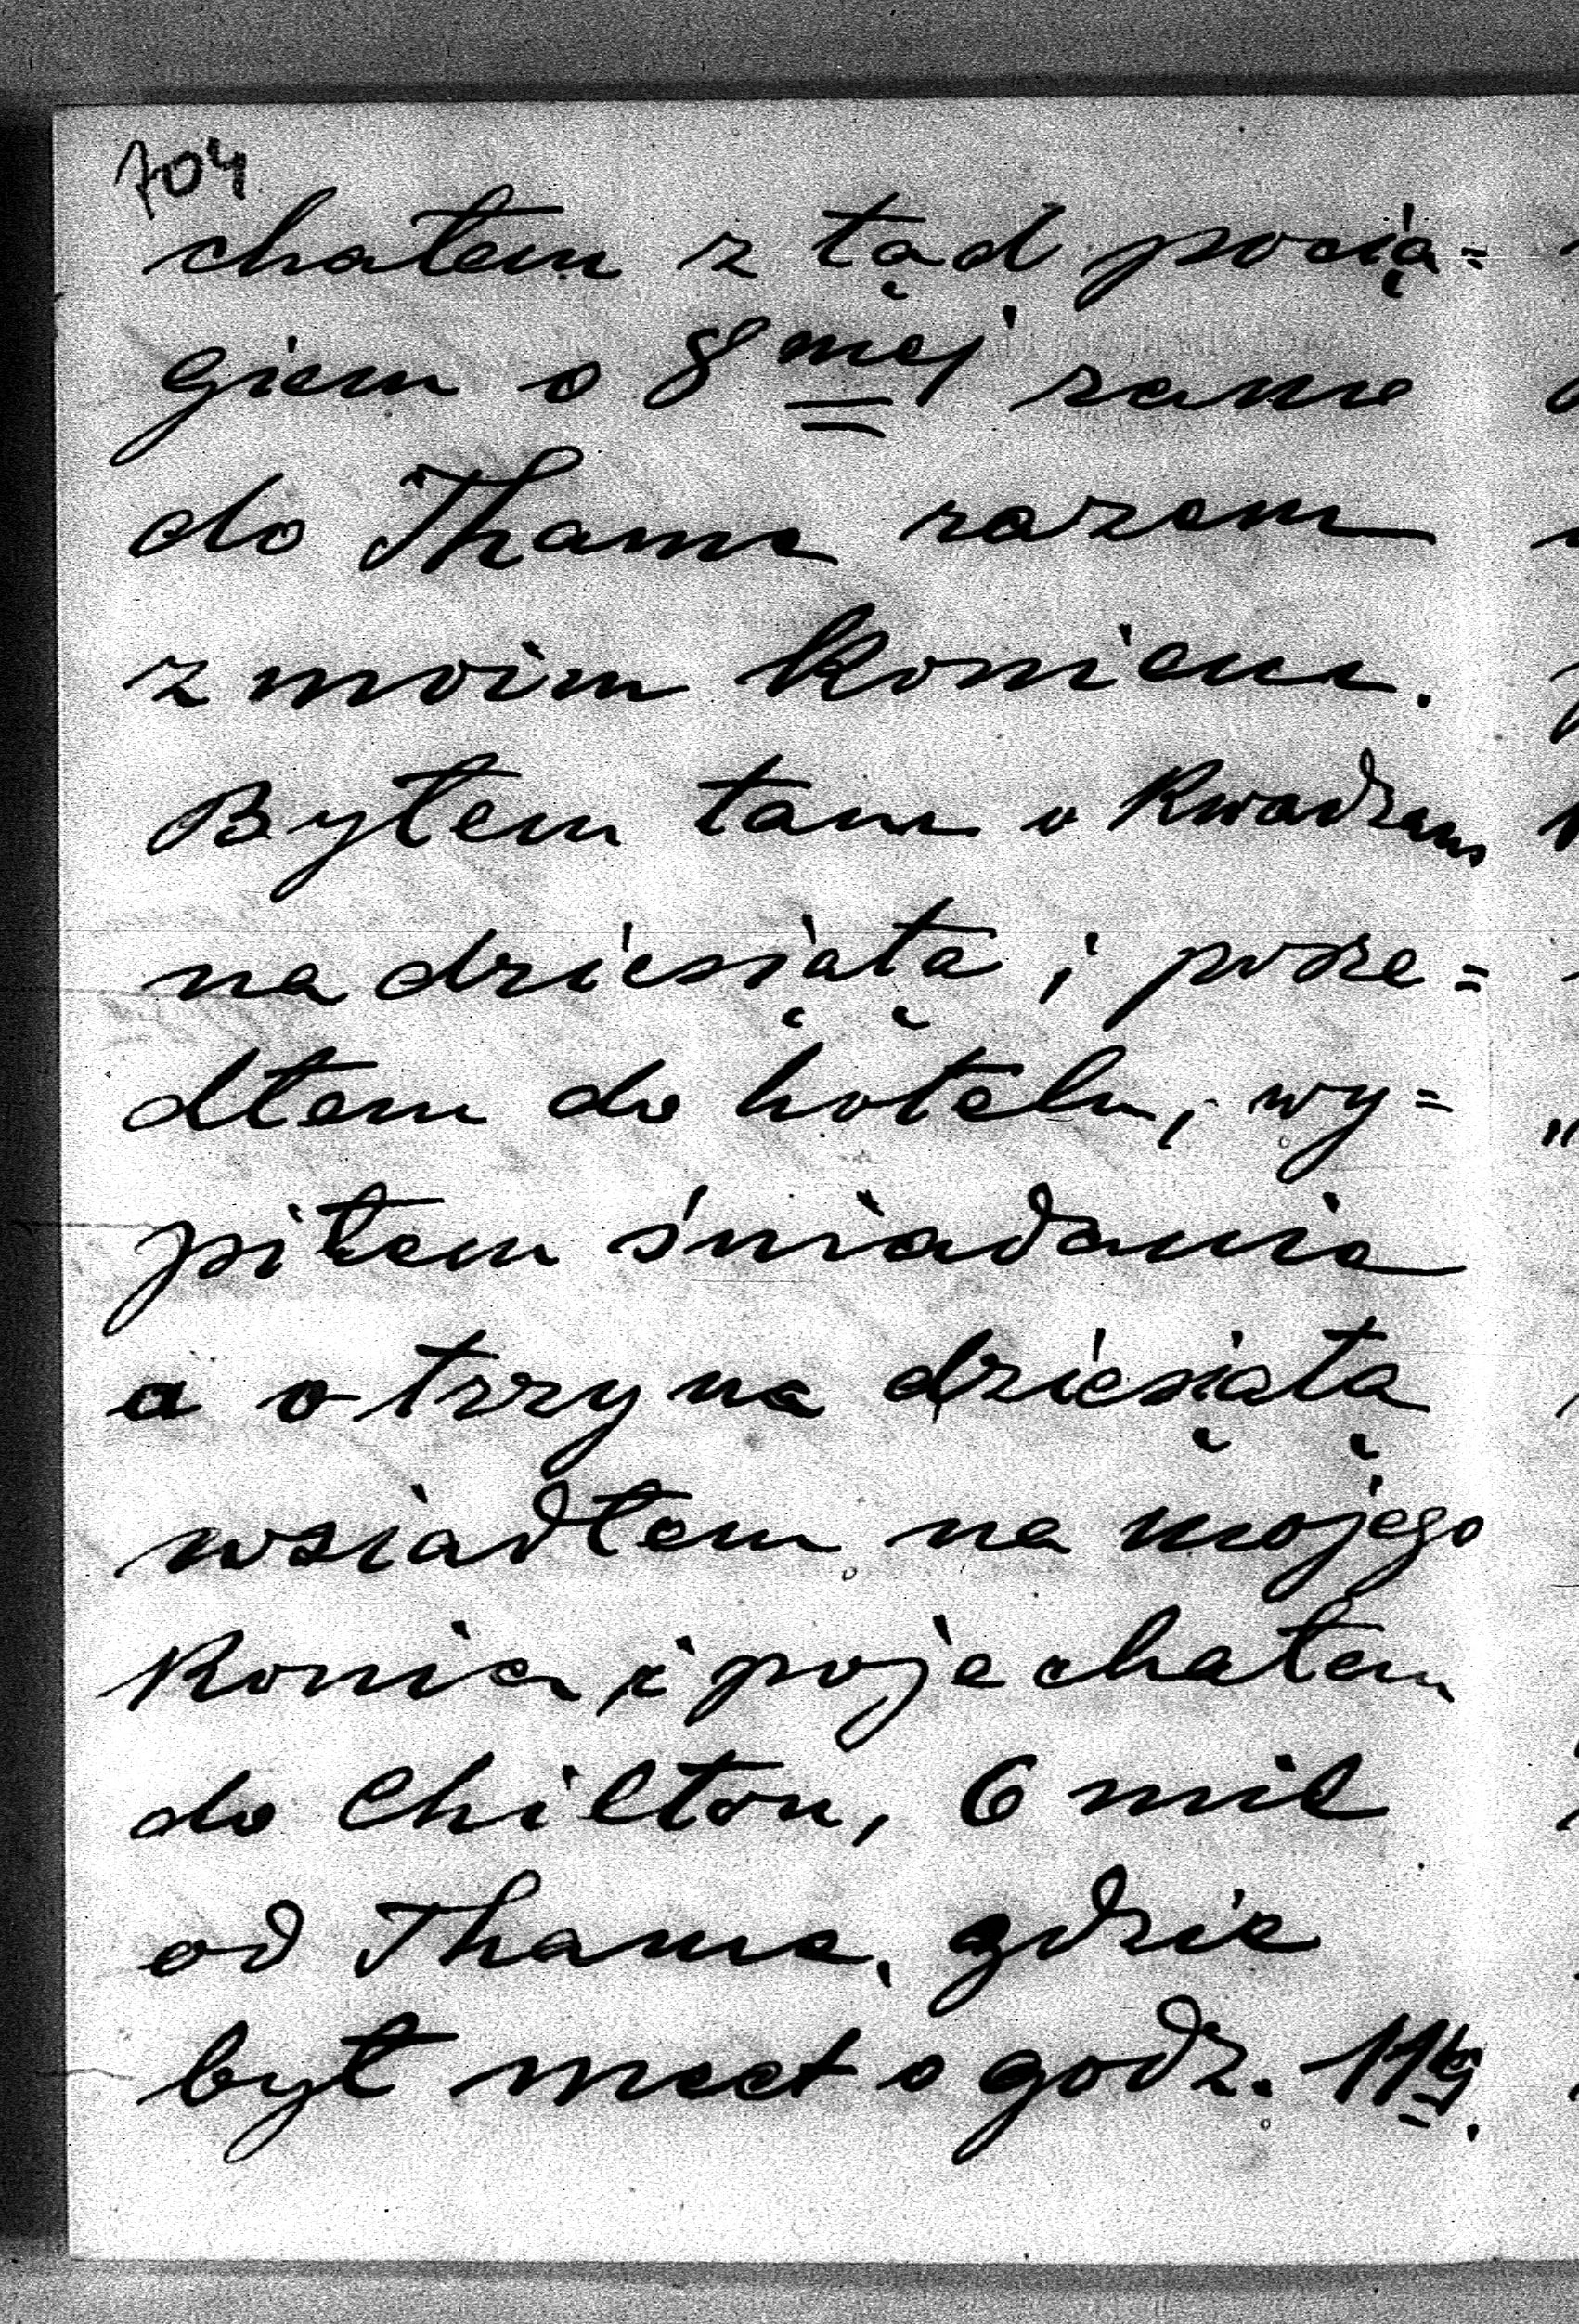 704
chałem z tąd pocią=
giem o 8mej rano
do Thame razem
z moim koniem.
Byłem tam o kwadrans
na dziesiątą i posze=
dłem do hotelu, wy=
piłem śniadanie
a o trzy na dziesiątą
wsiadłem na mojego
konia i pojechałem
do Chilton, 6 mil
od Thame, gdzie
był meet o godz. 11ej.